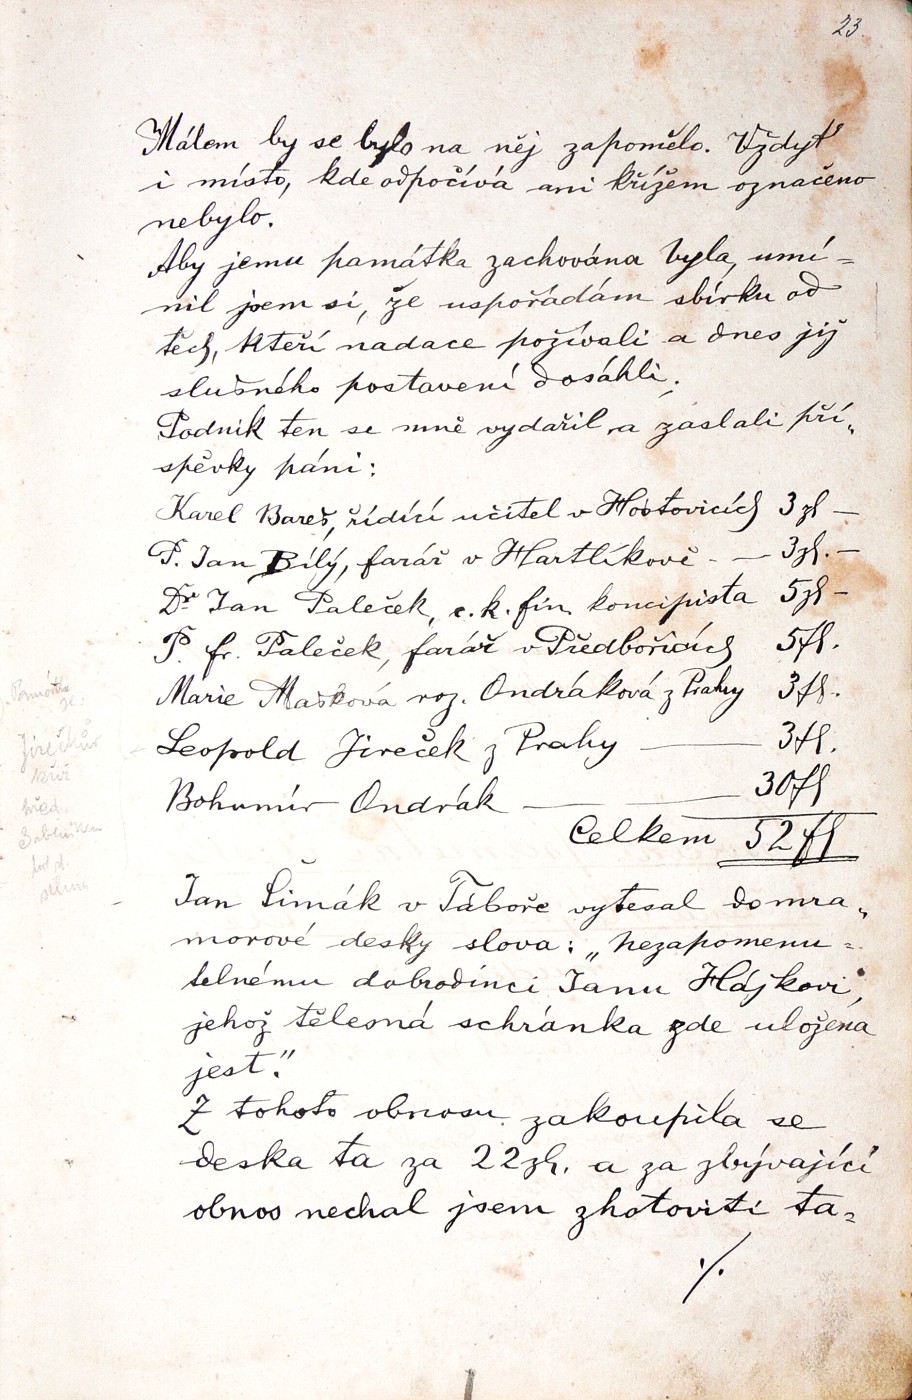 23.
Málem by se bylo na něj zapomělo. Vždyť
i místo, kde odpočívá ani křížem označeno
nebylo.
Aby jemu památka zachována byla, umí=
nil jsem si, že uspořádám sbírku od
těch, kteří nadace požívali a dnes již
slušného postavení dosáhli.
Podnik ten se mně vydařil a zaslali pří„
spěvky páni:
Karel Bareš, řídící učitel v Hostovicích 3 zl —
P. Jan Bílý, farář v Hartlíkově - — 3 zl. —
Dr Jan Paleček, c. k. fin. koncipista 5 zl —
P. fr. Paleček, farář v Předbořicích 5 fl.
Marie Mašková roz. Ondráková z Prahy 3 fl.
Leopold Jireček z Prahy — 3 fl.
Bohumír Ondrák — 30 fl
Celkem 52 fl
Jan Šimák v Táboře vytesal do mra„
morové desky slova: „Nezapomenu=
telnému dobrodinci Janu Hájkovi,
jehož tělesná schránka zde uložena
jest."
Z tohoto obnosu zakoupila se
deska ta za 22 zl. a za zbývající
obnos nechal jsem zhotoviti ta=
./.
Jirečkův
kříž